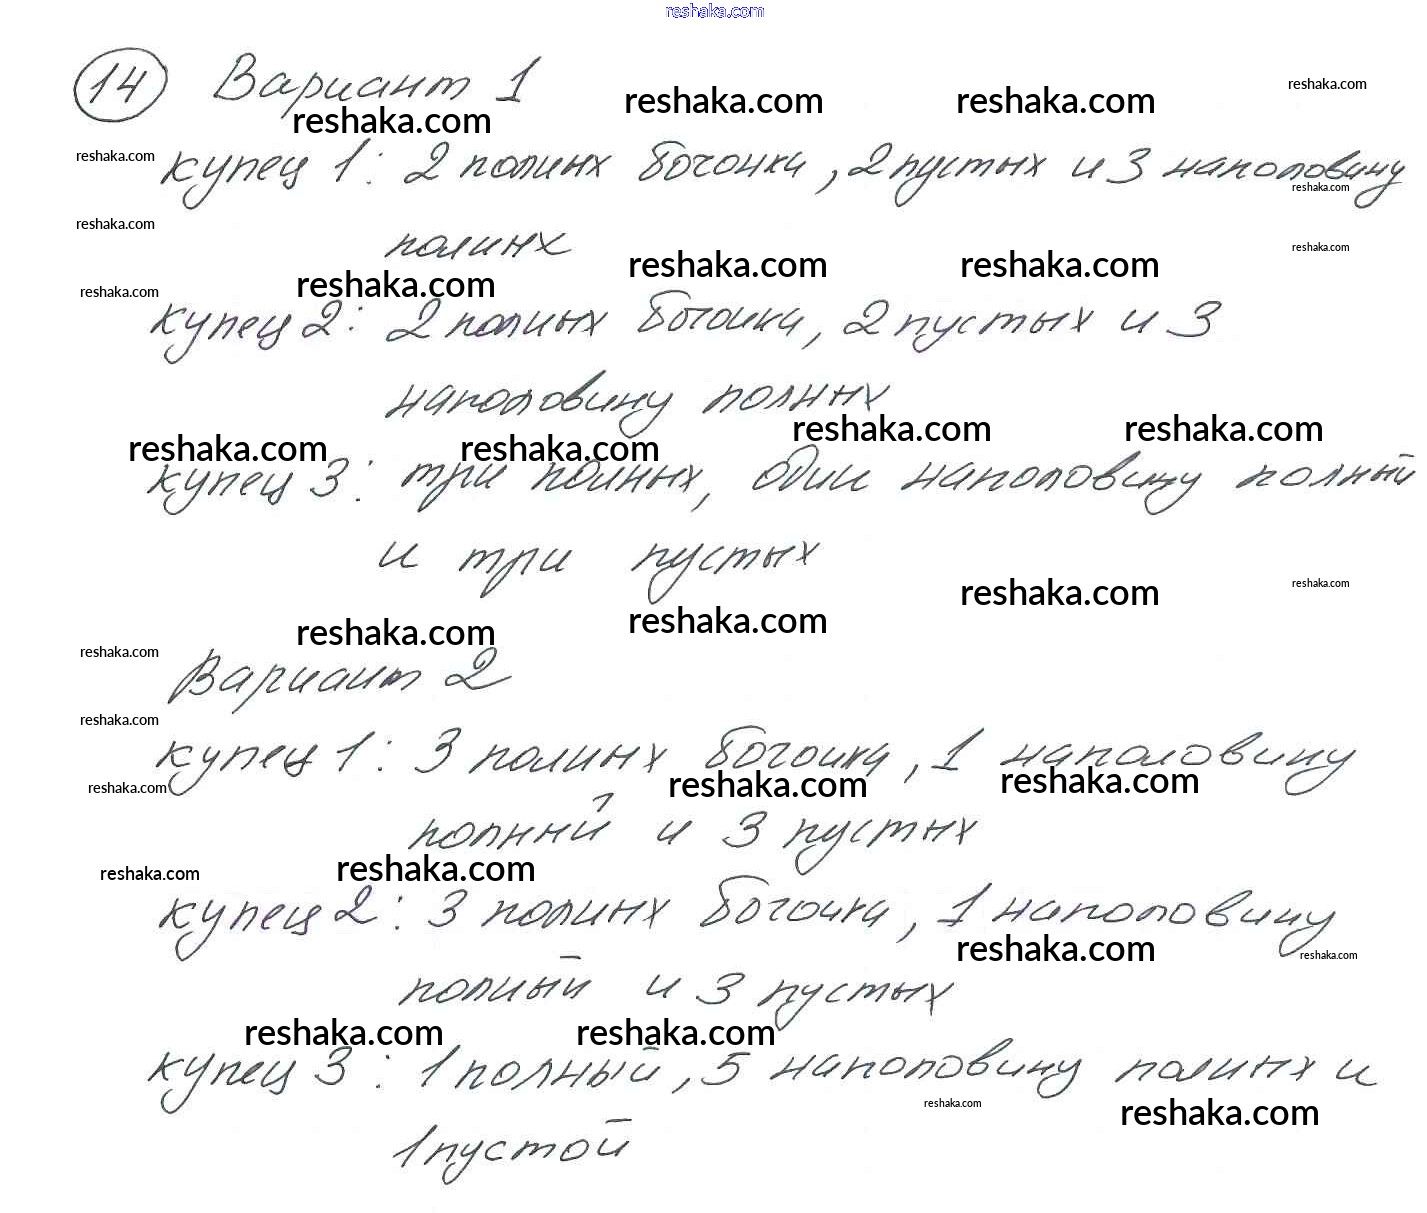 reshaka.com
14 Вариант 1
reshaka.com reshaka.com reshaka.com reshaka.com
reshaka.com
купец 1: 2 полных бочонка, 2 пустых и 3 наполовину
reshaka.com
полных
reshaka.com reshaka.com
reshaka.com reshaka.com reshaka.com reshaka.com
купец 2: 2 полных бочонка, 2 пустых и 3
наполовину полных
reshaka.com reshaka.com reshaka.com reshaka.com
купец 3: три полных, один наполовину полный
и три пустых
reshaka.com reshaka.com
reshaka.com reshaka.com
reshaka.com
Вариант 2
reshaka.com
купец 1: 3 полных бочонка, 1 наполовину
reshaka.com reshaka.com reshaka.com
полный и 3 пустых
reshaka.com reshaka.com
купец 2: 3 полных бочонка, 1 наполовину
reshaka.com reshaka.com
полный и 3 пустых
reshaka.com reshaka.com
купец 3: 1 полный, 5 наполовину полных и
reshaka.com reshaka.com
1 пустой